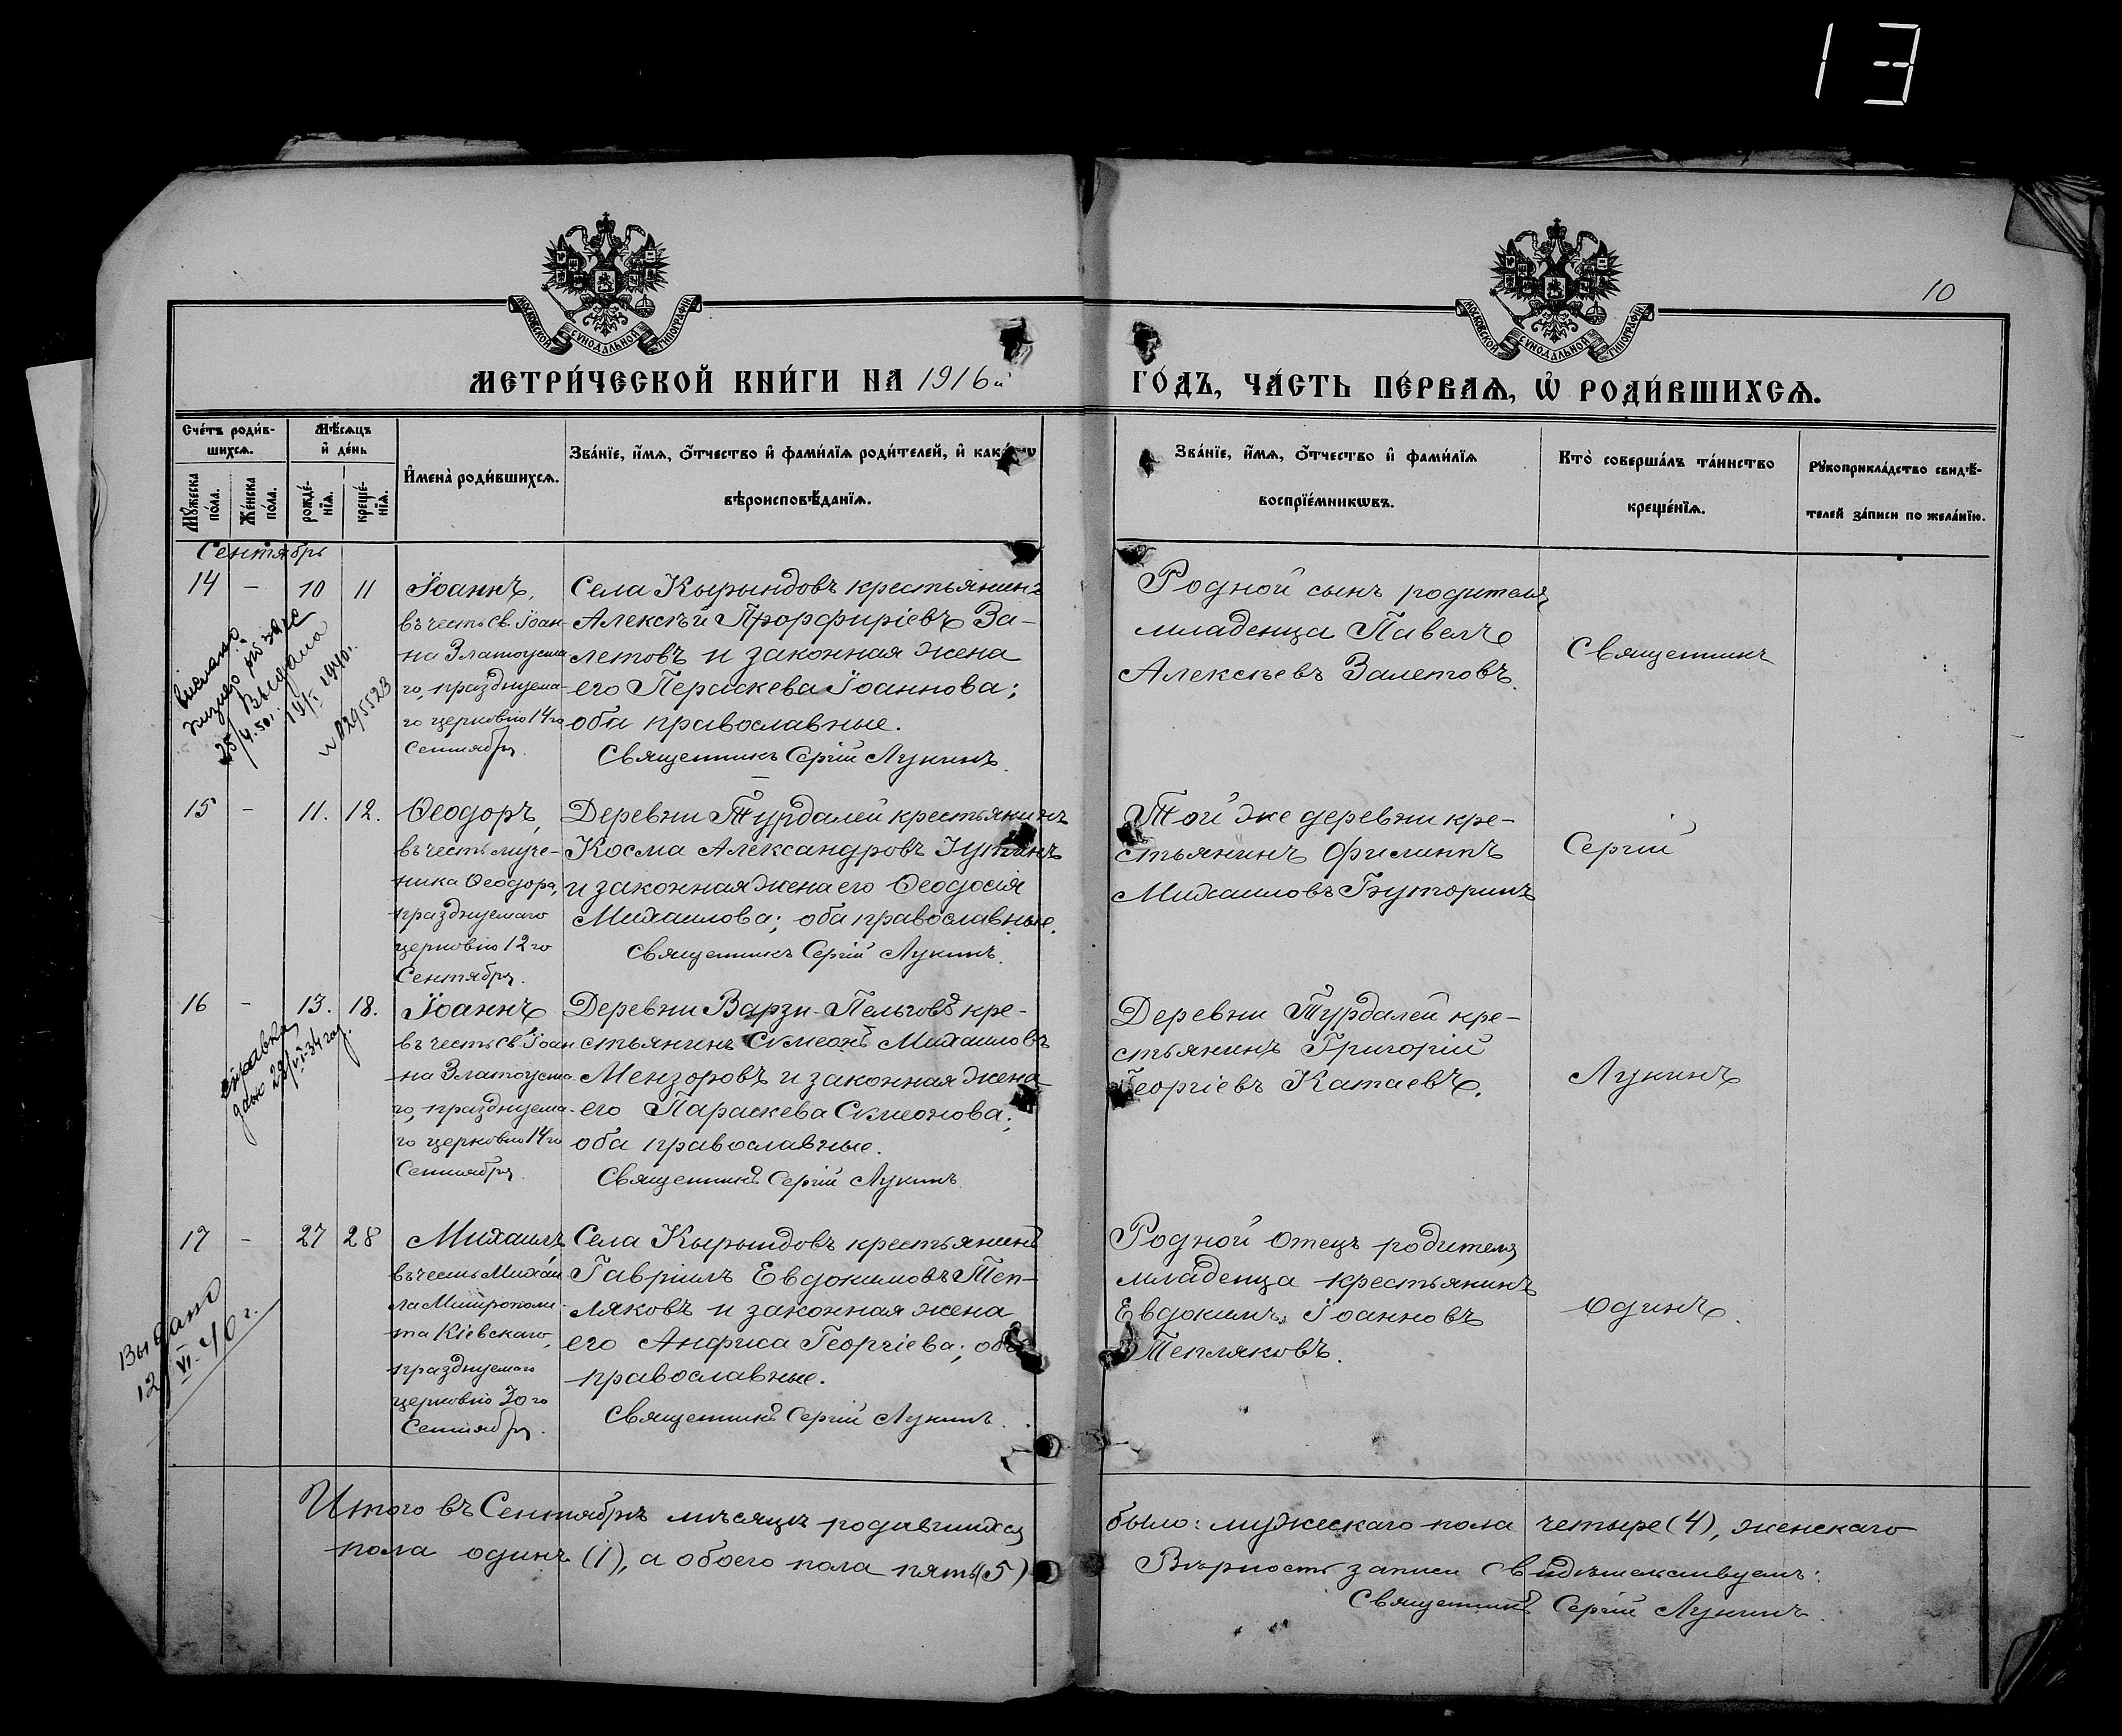 13
10
МОСКОВСКОЙ СУНОДАЛЬНОЙ ТИПОГРАФІИ
МОСКОВСКОЙ СУНОДАЛЬНОЙ ТИПОГРАФІИ
МЕТРИ́ЧЕСКОЙ КНИ́ГИ НА 1916й
ГО́ДЪ, ЧА́СТЬ ПЕ́РВАѦ, Ѡ҆ РОДИ́ВШИХСѦ.
Сче́тъ роди́в-
шихсѧ.
Мꙋ́жеска
по́ла.
Же́нска
по́ла.
Мѣ́сѧцъ
и҆ де́нь
рожде́-
нїѧ.
креще́-
нїѧ.
И҆мена̀ роди́вшихсѧ.
Зва́нїе, и҆́мѧ, ѻ҆́тчество и҆ фами́лїѧ роди́телей, и҆
вѣроисповѣ́данїѧ.
Зва́нїе, и҆́мѧ, ѻ҆́тчество и҆ фами́лїѧ
воспрїе́мникѡвъ.
Кто̀ соверша́лъ та́инство
креще́нїѧ.
Рꙋкоприкла́дство свидѣ́-
телей за́писи по жела́нїю.
Сентябрь
14 - 10 11
Іоаннъ,
въ честь св. Іоан-
на Златоуста-
го, празднуема-
го церковію 14го
Сентября.
Села Кырындовъ крестьянинъ
Алексѣй Прорфиріевъ За-
летовъ и законная жена
его Параскева Іоаннова;
оба православные.
Священникъ Сергій Лукинъ.
Родной сынъ родителя
младенца Павелъ
Алексѣевъ Залетовъ.
Священникъ
Выдана
19/I 1940г.
№ 0295523
15 - 11. 12.
Ѳеодоръ,
въ честь муче-
ника Ѳеодора,
празднуемаго
церковію 12го
Сентября.
Деревни Турдалей крестьянинъ
Косма Александровъ
и законная жена его Ѳеодосія
Михаилова; оба православные.
Священникъ Сергій Лукинъ.
Той же деревни кре-
стьянинъ Филиппъ
Михаиловъ Буторинъ
Сергій
16 - 13. 18.
Іоаннъ
въ честь св. Іоан
на Златоуста-
го, празднуема-
го церковію 14го
Сентября.
Деревни Варзи-Пельговъ кре-
стьянинъ Симеонъ Михаиловъ
Мензоровъ и законная жена
его Параскева Симеонова;
оба православные.
Священникъ Сергій Лукинъ
Деревни Турдалей кре-
стьянинъ Григорій
Георгіевъ Катаевъ.
Лукинъ
справка
дано 29/VI-34 год.
17 - 27 28
Михаилъ
въ честь Михаи
ла Митрополи-
та Кіевскаго,
празднуемаго
церковію 30го
Сентября.
Села Кырындовъ крестьянинъ
Гавріилъ Евдокимовъ Теп-
ляковъ и законная жена
его Анфиса Георгіева; оба
православные.
Священникъ Сергій Лукинъ.
Родной отецъ родителя
младенца крестьянинъ
Евдокимъ Іоанновъ
Тепляковъ.
Одинъ.
Выдано
12/VI-40г.
Итого въ Сентябрѣ мѣсяцѣ родившихся было: мужескаго пола четыре (4), женскаго
пола одинъ (1), а обоего пола пять (5) Вѣрность записи свидѣтельствуемъ:
Священникъ Сергій Лукинъ.